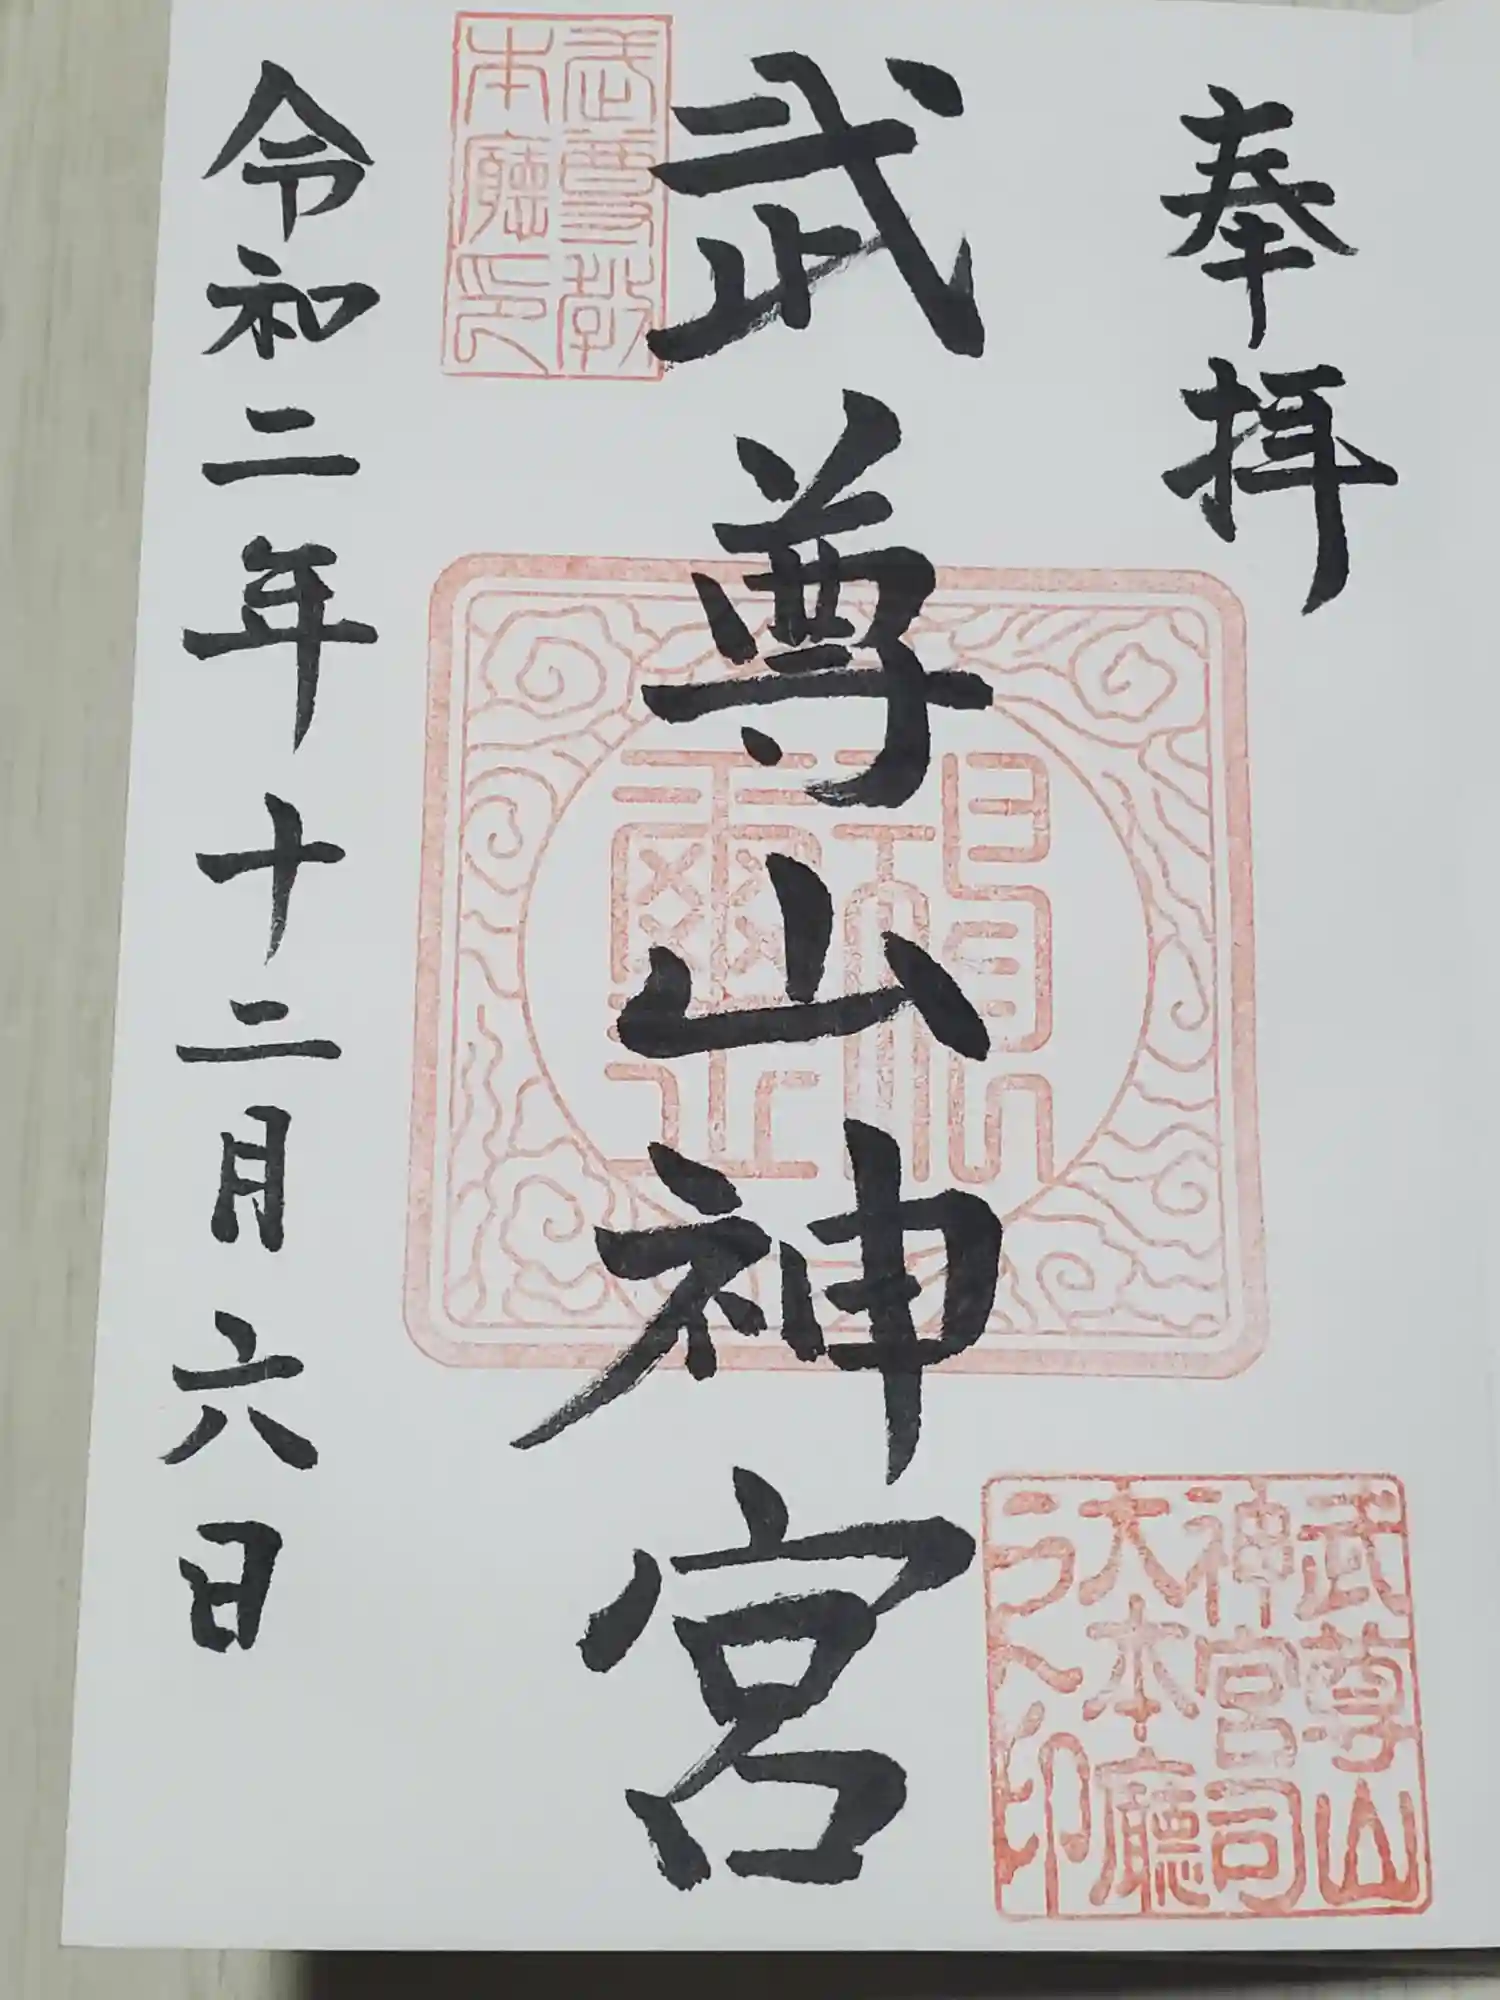 奉拝
武尊山神宮
武尊教
本廳印
武尊山
神宮司
大本廳
之印
令和二年十二月六日